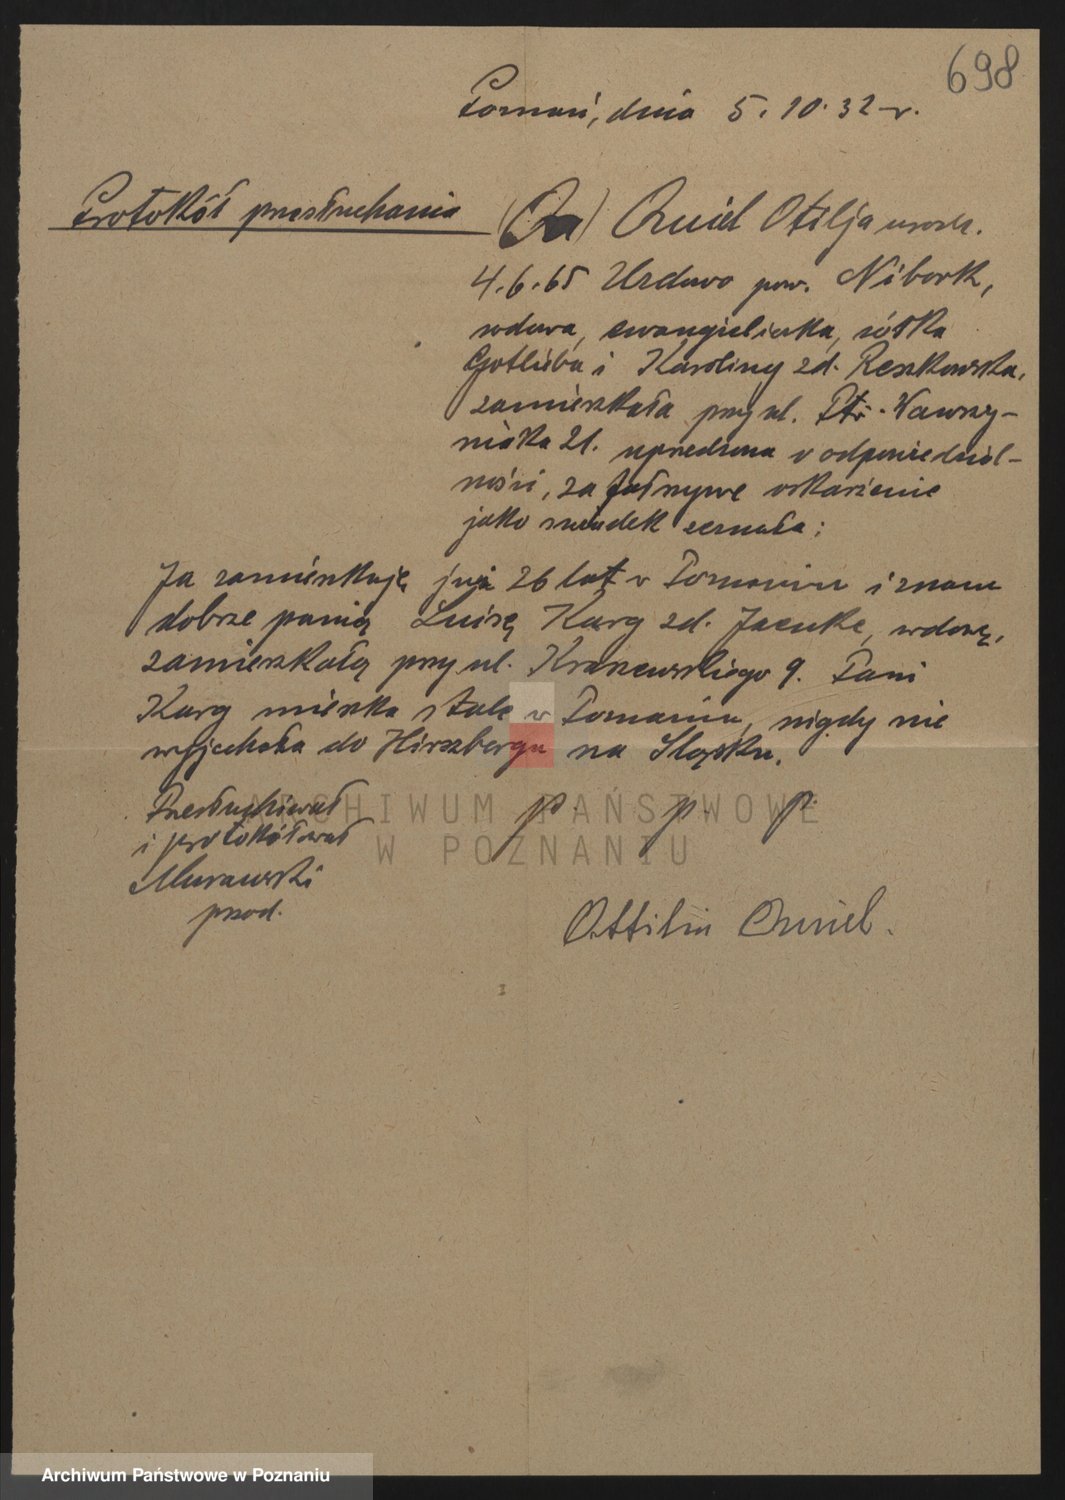 698
Poznań, dnia 5.10.32 r.
Protokół przesłuchania
Otilja urodz.
4.6.65 Uzdowo pow. Nibork,
wdowa, ewangieliczka, córka
Gotliba i Karoliny zd. Reszkowska,
zamieszkała przy ul. Ptr. Wawrzy-
niaka 21. uprzedzona o odpowiedzial-
ności, za fałszywe oskarżenie
jako świadek zeznała:
Ja zamieszkuję już 26 lat w Poznaniu i znam
dobrze panią Luizę Karg zd. Jaenke, wdowę,
zamieszkałą przy ul. Kraszewskiego 9. Pani
Karg mieszka stale w Poznaniu, nigdy nie
wyjechała do Hirszbergu na Sląsku.
Przesłuchiwał p. p. p.
i protokółował
Murawski
przod.
Ottilie
ARCHIWUM PAŃSTWOWE
W POZNANIU
Archiwum Państwowe w Poznaniu